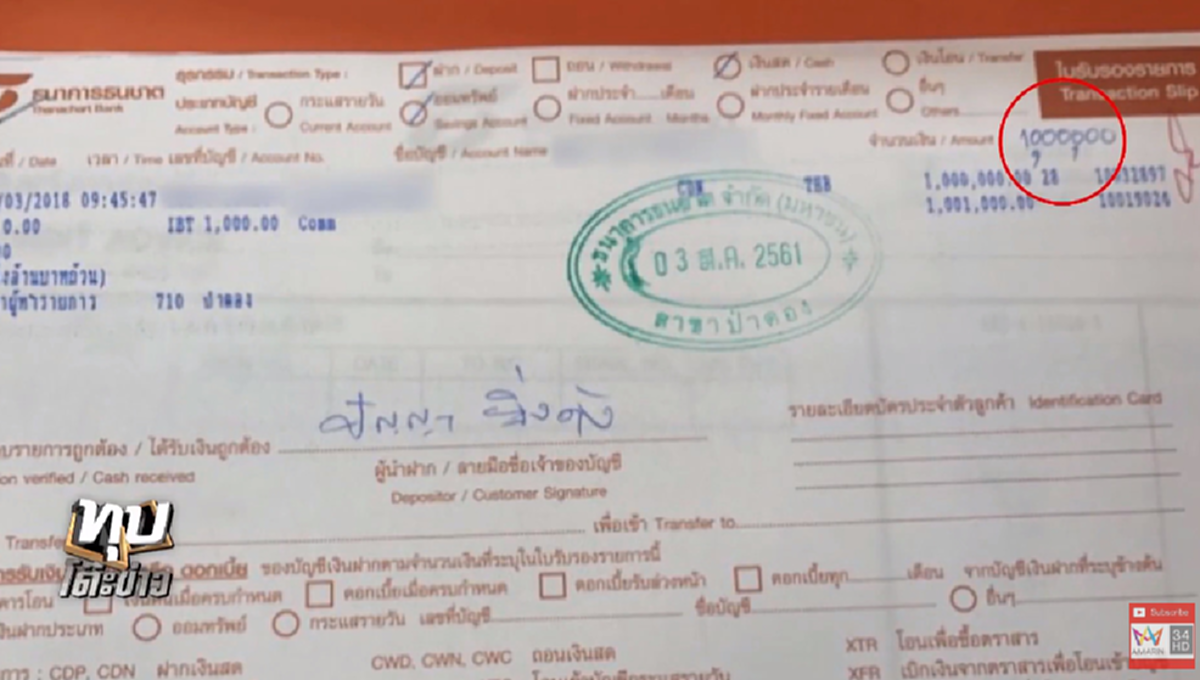 ธนาคารธนชาต ธุรกรรม / Transaction Type : ฝาก / Deposit ถอน / Withdrawal เงินสด / Cash เงินโอน / Transfer ใบรับรองรายการ
Thanachart Bank ประเภทบัญชี กระแสรายวัน ออมทรัพย์ ฝากประจำ......เดือน ฝากประจำรายเดือน อื่นๆ Transaction Slip
Account Type : Current Account Savings Account Fixed Account Months Monthly Fixed Account Others
ที่ / Date เวลา / Time เลขที่บัญชี / Account No. ชื่อบัญชี / Account Name จำนวนเงิน / Amount 1,000,000
/03/2018 09:45:47 CDN THB 1,000,000.00 28 10032897
0.00 IBT 1,000.00 Comm 1,001,000.00 10019026
00
ึ่งล้านบาทถ้วน)
าผู้ทำรายการ 710 ป่าตอง
ธนาคารธนชาต จำกัด (มหาชน)
03 ส.ค. 2561
สาขาป่าตอง
ปัญญา ยิ่งดัง
บรายการถูกต้อง / ได้รับเงินถูกต้อง รายละเอียดบัตรประจำตัวลูกค้า Identification Card
on verified / Cash received ผู้นำฝาก / ลายมือชื่อเจ้าของบัญชี
Depositor / Customer Signature
Transfe เพื่อเข้า Transfer to
ารรับเงิ ดอกเบี้ย ของบัญชีเงินฝากตามจำนวนเงินที่ระบุในใบรับรองรายการนี้
คารโอน เงินต้นเมื่อครบกำหนด ดอกเบี้ยเมื่อครบกำหนด ดอกเบี้ยรับล่วงหน้า ดอกเบี้ยทุก......เดือน จากบัญชีเงินฝากที่ระบุข้างต้น
งินฝากประเภท ออมทรัพย์ กระแสรายวัน เลขที่บัญชี ชื่อบัญชี อื่นๆ
การ : CDP, CDN ฝากเงินสด CWD, CWN, CWC ถอนเงินสด XTR โอนเพื่อซื้อตราสาร
XFR เบิกเงินจากตราสารเพื่อโอนเข้าบัญชี
ทุบ
โต๊ะข่าว
Subscribe
AMARIN 34 HD